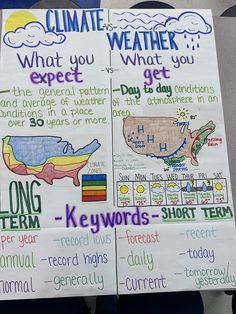 CLIMATE vs. WEATHER
What you expect
-vs-
What you get
- the general pattern and average of weather conditions in a place over 30 years or more
- Day to day conditions of the atmosphere in an area.
H
H
H
CLIMATE ZONES
LONG TERM
SUN MON TUES WED THUR FRI SAT
SHORT TERM
-Keywords-
per year
-record lows
annual
-record highs
normal
-generally
-forecast
-recent
-daily
-today
-current
-tomorrow/yesterday